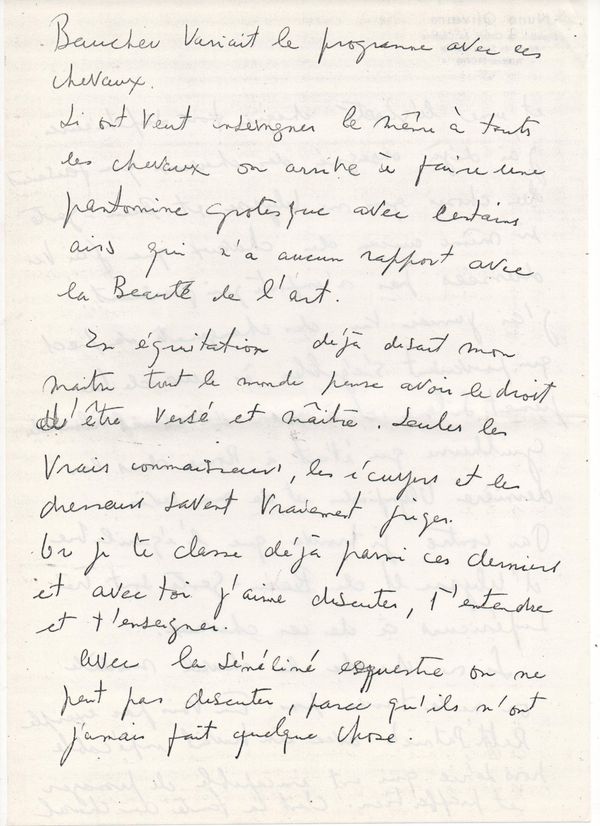 Baucher variait le programme avec ces
chevaux.
Si ont veut enseigner le même à touts
les chevaux on arrive à faire une
pantomine grotesque avec certains
airs qui n'a aucun rapport avec
la Beauté de l'art.
En équitation déjà disait mon
maitre tout le monde pense avoir le droit
d'être versé et maître. Seules les
vrais connaisseurs, les écuyers et les
dresseurs savent vraiment juger.
Or je te classe déjà parmi ces derniers
et avec toi j'aime discuter, t'entendre
et t'enseigner.
Avec la équestre on ne
peut pas discuter, parce qu'ils n'ont
jamais fait quelque chose.